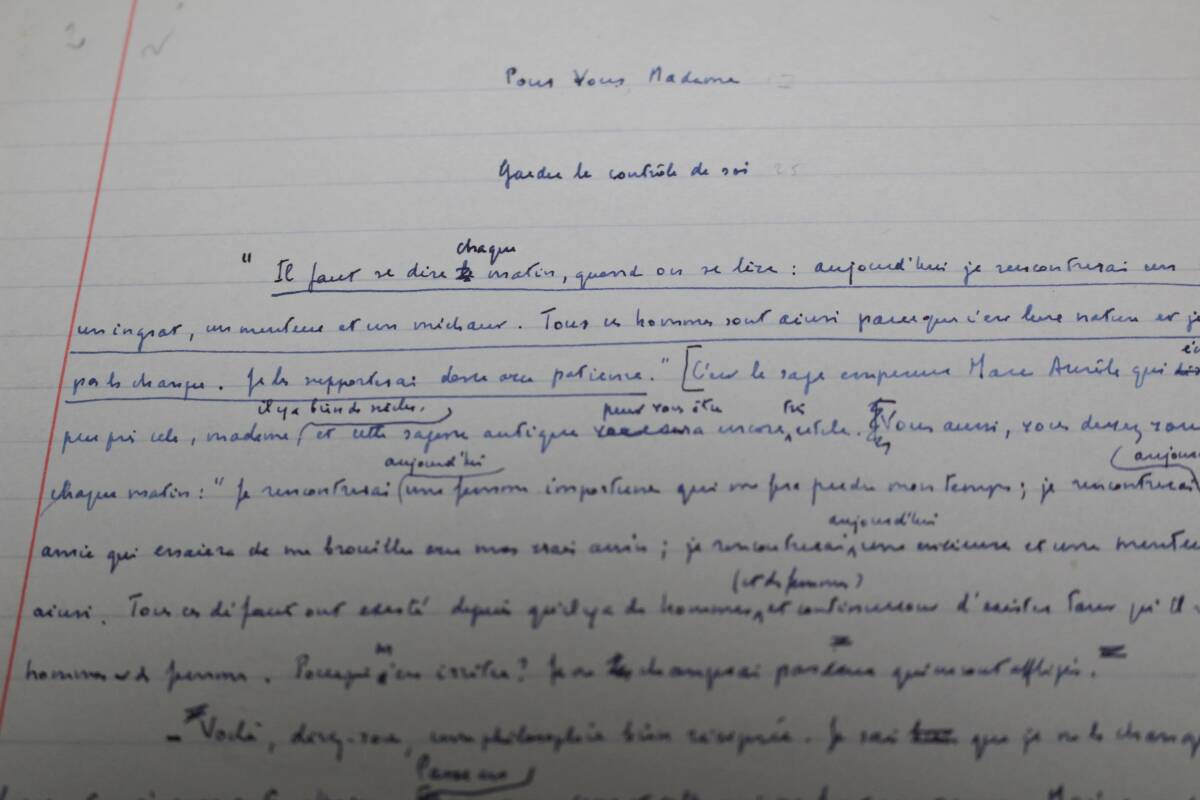 2
Pour Vous, Madame
Garder le contrôle de soi 25
chaque
" Il faut se dire matin, quand on se lève : aujourd'hui je rencontrerai un
un ingrat, un menteur et un méchant. Tous ces hommes sont ainsi parce que c'est leur nature et je
pas les changer. Je les supporterai donc avec patience." [C'est le sage empereur Marc Aurèle qui
il y a bien des siècles, peut vous être très
peu près cela, madame, et cette sagesse antique encore utile. Vous aussi, vous devez vous
aujourd'hui
chaque matin : " Je rencontrerai une personne importune qui me fera perdre mon temps ; je rencontrerai
aujourd'hui
amie qui essaiera de me brouiller avec mes vrais amis ; je rencontrerai une envieuse et une menteuse
(et des femmes)
ainsi. Tous ces défauts ont existé depuis qu'il y a des hommes, et continueront d'exister tant qu'il
hommes et des femmes. Pourquoi m'en irriter ? Je ne changerai pas qui en sont affligés.
- Voilà, direz-vous, une philosophie bien résignée. Je sais que je ne les changerai